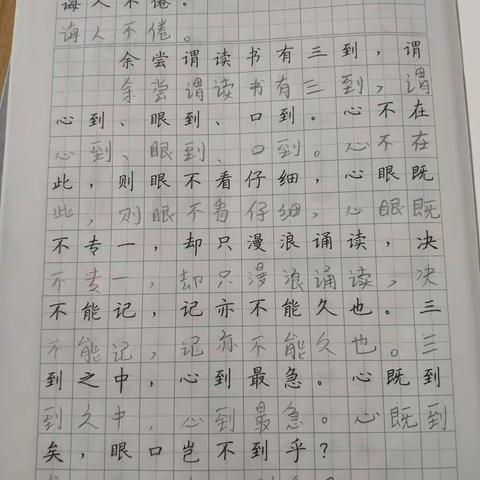 诲人不倦。
诲人不倦。
余尝谓读书有三到，谓
余尝谓读书有三到，谓
心到、眼到、口到。心不在
心到、眼到、口到。心不在
此，则眼不看仔细，心眼既
此，则眼不看仔细，心眼既
不专一，却只漫浪诵读，决
不专一，却只漫浪诵读，决
不能记，记亦不能久也。三
不能记，记亦不能久也。三
到之中，心到最急。心既到
到久中，心到最急。心既到
矣，眼口岂不到乎？